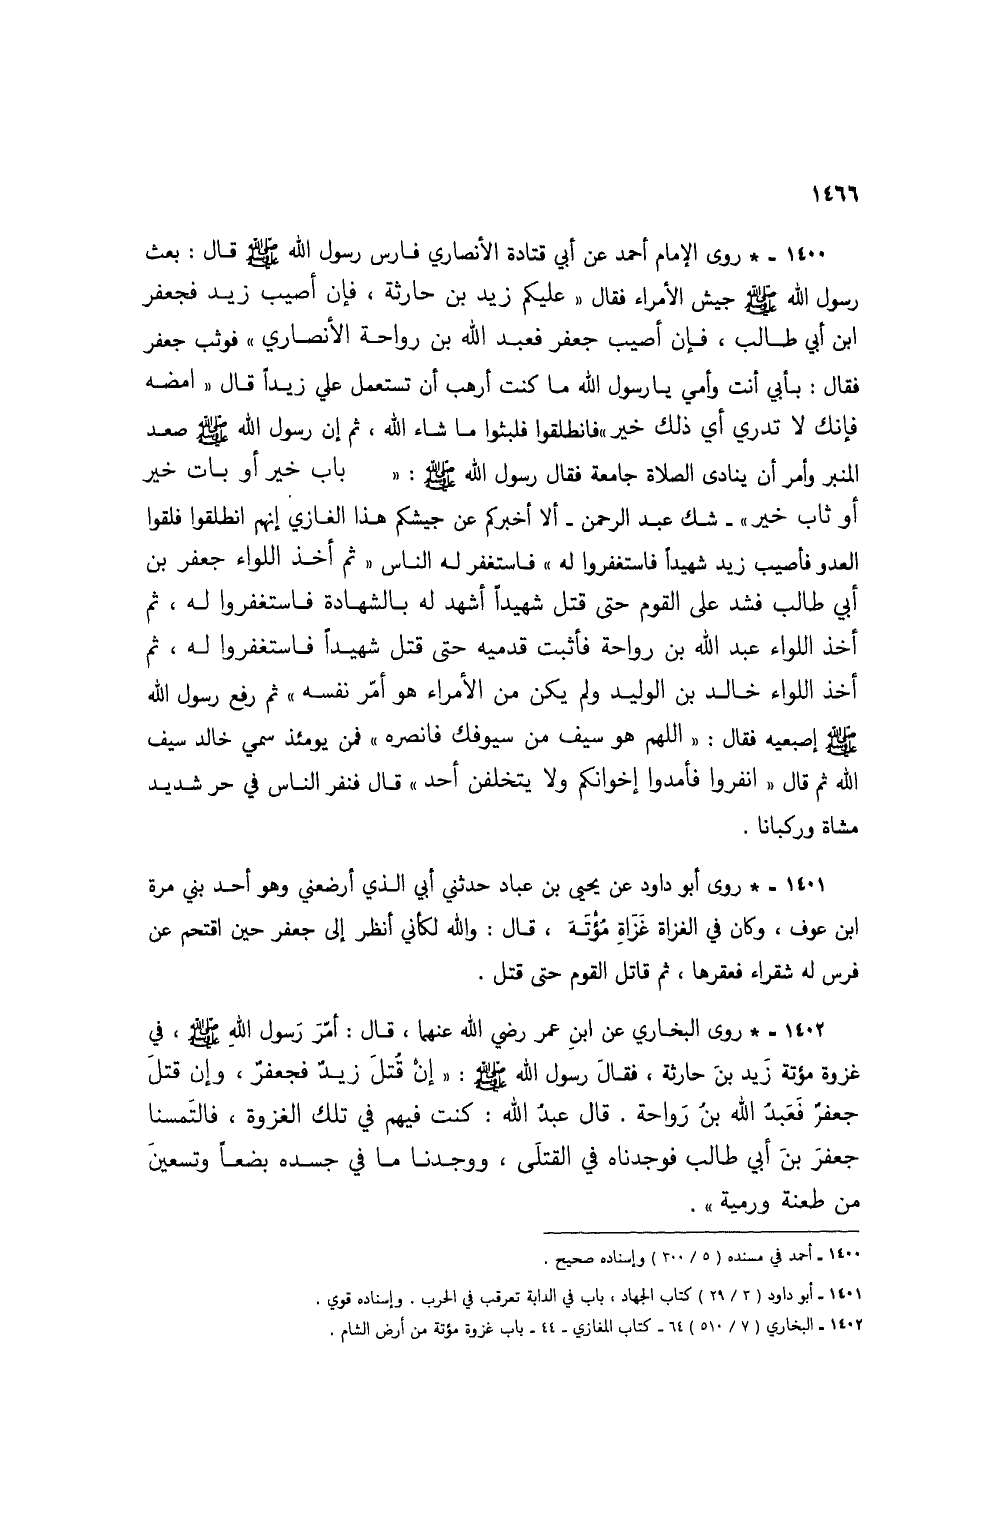 ١٤٦٦
١٤٠٠ ـ * روى الإمام أحمد عن أبي قتادة الأنصاري فارس رسول الله ﷺ قال : بعث
رسول الله ﷺ جيش الأمراء فقال « عليكم زيد بن حارثة ، فإن أصيب زيد فجعفر
ابن أبي طالب ، فإن أصيب جعفر فعبد الله بن رواحة الأنصاري » فوثب جعفر
فقال : بأبي أنت وأمي يارسول الله ما كنت أرهب أن تستعمل علي زيداً قال « امضه
فإنك لا تدري أي ذلك خير »فانطلقوا فلبثوا ما شاء الله ، ثم إن رسول الله ﷺ صعد
المنبر وأمر أن ينادى الصلاة جامعة فقال رسول الله ﷺ : « باب خير أو بات خير
أو ثاب خير» ـ شك عبد الرحمن ـ ألا أخبركم عن جيشكم هذا الغازي إنهم انطلقوا فلقوا
العدو فأصيب زيد شهيداً فاستغفروا له » فاستغفر له الناس « ثم أخذ اللواء جعفر بن
أبي طالب فشد على القوم حتى قتل شهيداً أشهد له بالشهادة فاستغفروا له ، ثم
أخذ اللواء عبد الله بن رواحة فأثبت قدميه حتى قتل شهيداً فاستغفروا له ، ثم
أخذ اللواء خالد بن الوليد ولم يكن من الأمراء هو أمّر نفسه » ثم رفع رسول الله
ﷺ إصبعيه فقال : « اللهم هو سيف من سيوفك فانصره » فمن يومئذ سمي خالد سيف
الله ثم قال « انفروا فأمدوا إخوانكم ولا يتخلفن أحد » قال فنفر الناس في حر شديد
مشاة وركبانا .
١٤٠١ ـ * روى أبو داود عن يحيى بن عباد حدثني أبي الذي أرضعني وهو أحد بني مرة
ابن عوف ، وكان في الغزاة غَزَاةِ مُؤْتَةَ ، قال : والله لكأني أنظر إلى جعفر حين اقتحم عن
فرس له شقراء فعقرها ، ثم قاتل القوم حتى قتل .
١٤٠٢ ـ * روى البخاري عن ابنِ عمر رضي الله عنهما ، قال : أمّرَ رَسول اللهِ ﷺ ، في
غزوة مؤتة زَيد بنَ حارثة ، فقالَ رسول الله ﷺ : « إنْ قُتلَ زيدٌ فجعفرٌ ، وإن قتلَ
جعفرٌ فَعَبدُ الله بنُ رَواحة . قال عبدُ الله : كنت فيهم في تلك الغزوة ، فالتَمسنا
جعفرَ بنَ أبي طالب فوجدناه في القتلَى ، ووجدنا ما في جسده بضعاً وتسعينَ
من طعنة ورمية » .
١٤٠٠ ـ أحمد في مسنده ( ٥ / ٣٠٠ ) وإسناده صحيح .
١٤٠١ ـ أبو داود ( ٣ / ٢٩ ) كتاب الجهاد ، باب في الدابة تعرقب في الحرب . وإسناده قوي .
١٤٠٢ ـ البخاري ( ٧ / ٥١٠ ) ٦٤ ـ كتاب المغازي ـ ٤٤ ـ باب غزوة مؤتة من أرض الشام .